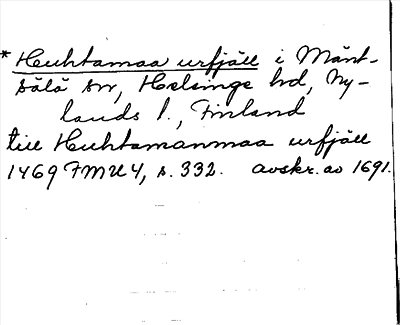 * Huhtamaa urfjäll i Mänt-
sälä sn, Helsinge hd, Ny-
lands l., Finland
till Huhtamanmaa urfjäll
1469 FMU 4, s. 332. avskr. av 1691.